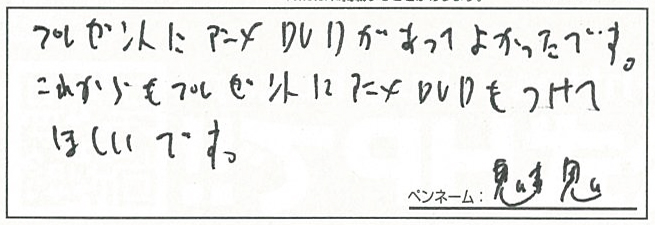 プレゼントにアニメDVDがあってよかったです。
これからもプレゼントにアニメDVDもつけて
ほしいです。
ペンネーム：